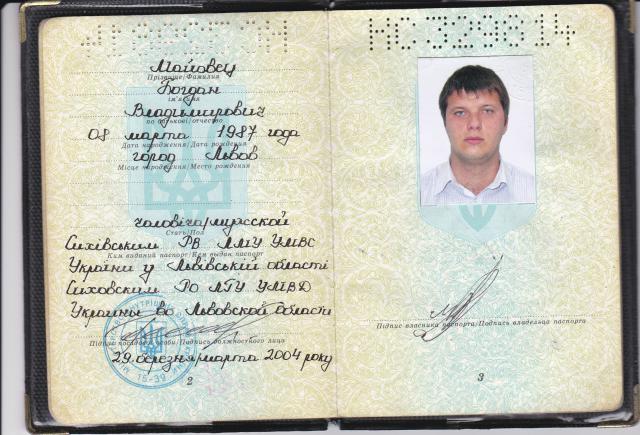 Майовец
Прізвище/Фамилия
Богдан
ім'я/имя
Владимирович
по батькові/отчество
08 марта 1987 года
Дата народження/Дата рождения
город Львов
Місце народження/Место рождения
чоловіча/мужской
Стать/Пол
Сихівським РВ ЛМУ УМВС
Ким виданий паспорт/Кем выдан паспорт
України у Львівській області
Сиховским РО ЛГУ УМВД
Украины во Львовской области
Підпис посадової особи/Подпись должностного лица
29 березня/марта 2004 року
2
НС 329814
Підпис власника паспорта/Подпись владельца паспорта
3